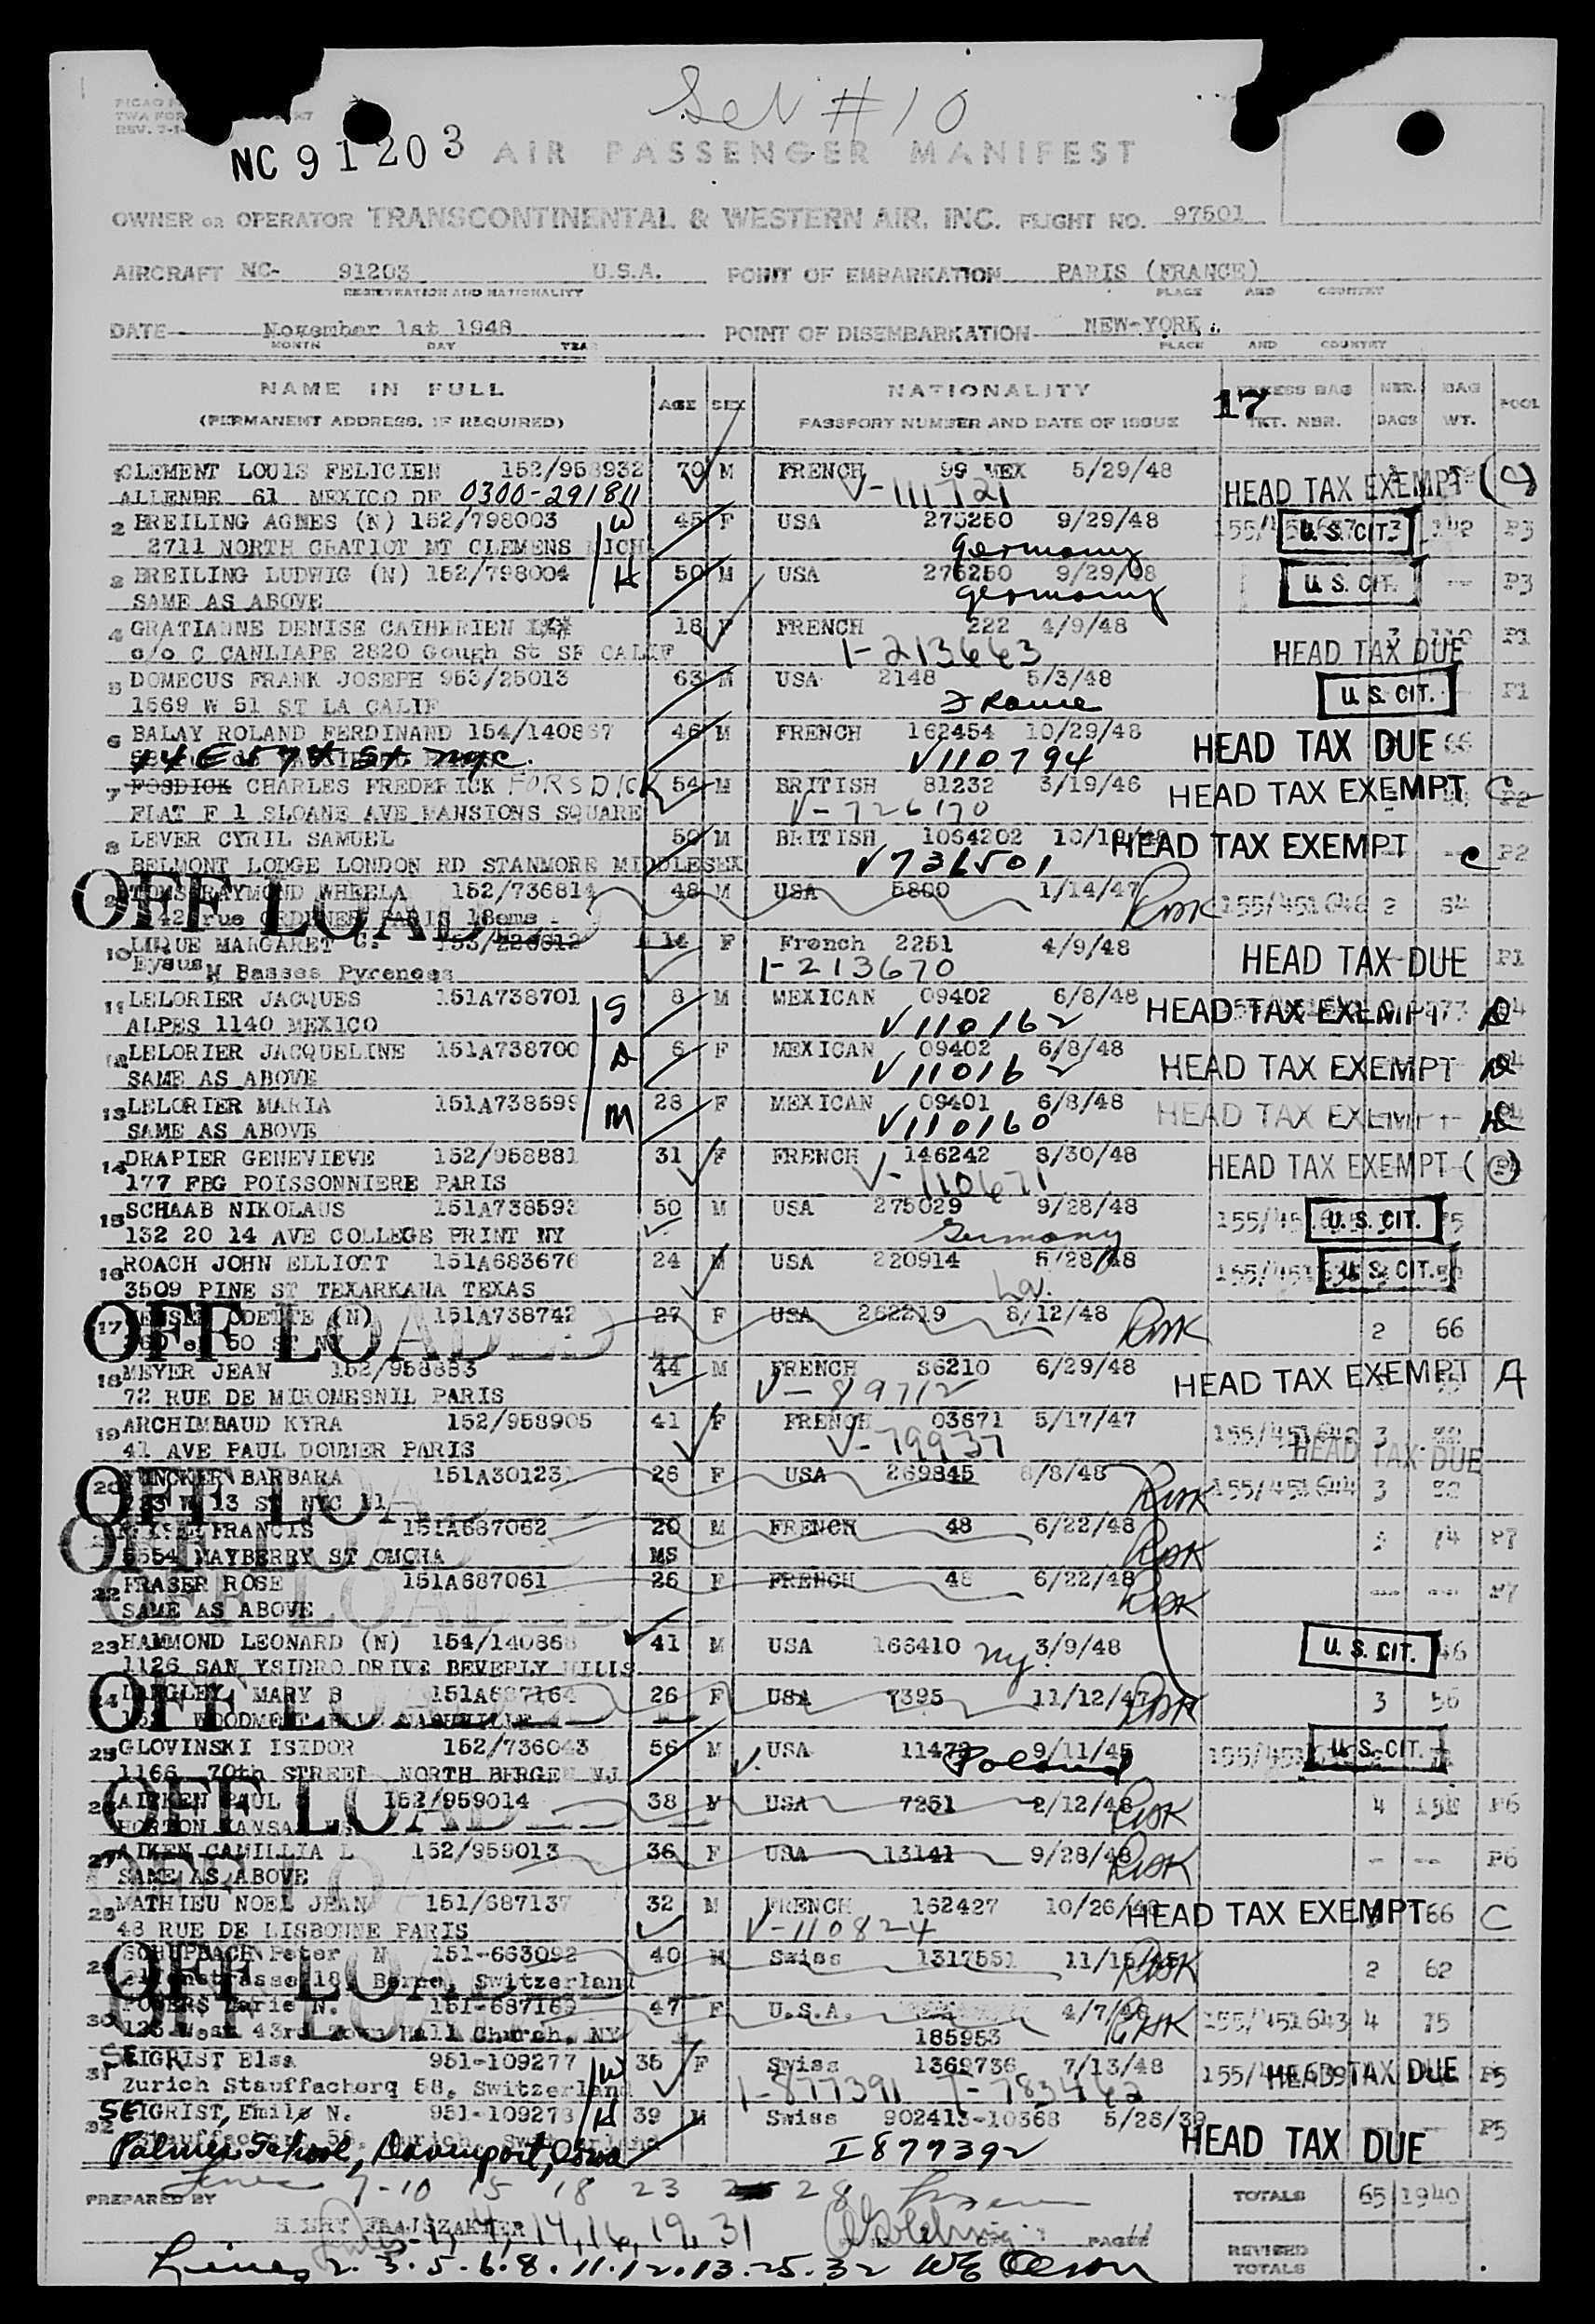 Set # 10
NC 91203 AIR PASSENGER MANIFEST
OWNER OR OPERATOR TRANSCONTINENTAL & WESTERN AIR, INC. FLIGHT NO. 97501
AIRCRAFT NC- 91203 U.S.A. POINT OF EMBARKATION PARIS (FRANCE)
REGISTRATION AND NATIONALITY PLACE AND COUNTRY
DATE November 1st 1948 POINT OF DISEMBARKATION NEW-YORK.
MONTH DAY YEAR PLACE AND COUNTRY
NAME IN FULL AGE SEX NATIONALITY EXCESS BAG NBR. BAG POOL
(PERMANENT ADDRESS, IF REQUIRED) PASSPORT NUMBER AND DATE OF ISSUE 17 TKT. NBR. BAGS WT.
1 CLEMENT LOUIS FELICIEN 152/958932 70 M FRENCH 99 MEX 5/29/48
ALLENDE 61 MEXICO DF 0300-291811 V-111721 HEAD TAX EXEMPT (C)
2 BREILING AGNES (N) 152/798003 W 45 F USA 275250 9/29/48 U.S. CIT. P3
2711 NORTH GRATIOT MT CLEMENS MICH Germany
3 BREILING LUDWIG (N) 152/798004 H 50 M USA 275250 9/29/48 U.S. CIT. -- P3
SAME AS ABOVE Germany
4 GRATIANNE DENISE CATHERIEN 18 F FRENCH 222 4/9/48 P1
c/o C CANLIAPE 2820 Gough St SF CALIF 1-213663 HEAD TAX DUE
5 DOMECUS FRANK JOSEPH 953/25013 63 M USA 2148 5/3/48 U.S. CIT. P1
1569 W 51 ST LA CALIF France
6 BALAY ROLAND FERDINAND 154/140867 46 M FRENCH 162454 10/29/48 HEAD TAX DUE 66
14 E 57th St nyc. V110794
7 FOSDICK CHARLES FREDERICK FORSDICK 54 M BRITISH 81232 3/19/46 HEAD TAX EXEMPT C P2
FLAT F 1 SLOANE AVE MANSIONS SQUARE V-726170
8 LEVER CYRIL SAMUEL 50 M BRITISH 1064202 HEAD TAX EXEMPT C P2
BELMONT LODGE LONDON RD STANMORE MIDDLESEX V736501
OFF LOADED RAYMOND WHEELA 152/736814 48 M USA 5800 1/14/47 155/451648 2 84
42 rue ORDENER PARIS 18eme
10 LUQUE MARGARET C. 14 F French 2251 4/9/48 HEAD TAX DUE P1
Eysus Basses Pyrenees 1-213670
11 LELORIER JACQUES 151A738701 S 8 M MEXICAN 09402 6/8/48 HEAD TAX EXEMPT
ALPES 1140 MEXICO V110162
12 LELORIER JACQUELINE 151A738700 D 6 F MEXICAN 09402 6/8/48 HEAD TAX EXEMPT
SAME AS ABOVE V110162
13 LELORIER MARIA 151A738699 M 28 F MEXICAN 09401 6/8/48 HEAD TAX EXEMPT
SAME AS ABOVE V110160
14 DRAPIER GENEVIEVE 152/958881 31 F FRENCH 146242 8/30/48 HEAD TAX EXEMPT
177 FBG POISSONNIERE PARIS V-110671
15 SCHAAB NIKOLAUS 151A738592 50 M USA 275029 9/28/48 U.S. CIT.
132 20 14 AVE COLLEGE PRINT NY Germany
16 ROACH JOHN ELLIOTT 151A683676 24 M USA 220914 5/28/48 U.S. CIT.
3509 PINE ST TEXARKANA TEXAS La.
17 OFF LOADED ODETTE (N) 151A738742 27 F USA 262219 8/12/48 2 66
50 ST NY
18 MEYER JEAN 152/958883 44 M FRENCH 86210 6/29/48 HEAD TAX EXEMPT A
72 RUE DE MIROMESNIL PARIS V-89712
19 ARCHIMBAUD KYRA 152/958905 41 F FRENCH 03671 5/17/47 155/451642 3
41 AVE PAUL DOUMER PARIS V-79937 HEAD TAX DUE
20 OFF LOADED BARBARA 151A301231 26 F USA 269845 8/8/48 155/451644 3
W 13 ST NYC 11
OFF LOADED FRANCIS 151A687062 20 M FRENCH 48 6/22/48 74 P7
5554 MAYBERRY ST OMCHA MS
22 FRASER ROSE 151A687061 26 F FRENCH 48 6/22/48 --- --- P7
SAME AS ABOVE OFF LOADED
23 HAMMOND LEONARD (N) 154/140868 41 M USA 166410 ny. 3/9/48 U.S. CIT. 46
1126 SAN YSIDRO DRIVE BEVERLY HILLS
24 OFF LOADED LANGLEY MARY B 151A687164 26 F USA 7395 11/12/47 3 56
WOODMONT BLV NASHVILLE
25 GLOVINSKI ISIDOR 152/736043 56 M USA 9/11/45 U.S. CIT.
1166 70th STREET NORTH BERGEN NJ Poland
26 OFF LOADED AIKEN PAUL 152/959014 38 M USA 7251 2/12/48 4 P6
HORTON KANSAS
27 AIKEN CAMILLIA L 152/959013 36 F USA 13141 9/28/48 - -- P6
SAME AS ABOVE
28 MATHIEU NOEL JEAN 151/687137 32 M FRENCH 162427 10/26/48 HEAD TAX EXEMPT 66 C
48 RUE DE LISBONNE PARIS V-110824
29 OFF LOADED SCHUPBACH Peter N 151-663092 40 M Swiss 1317551 11/15/45 2 62
18, Berne, Switzerland
30 OFF LOADED POWERS Marie N. 151-687169 47 F U.S.A. 4/7/48 155/451643 4 75
123 West 43rd Town Hall Church, NY 185953
31 SEIGRIST Elsa 951-109277 W 35 F Swiss 1369736 7/13/48 HEAD TAX DUE P5
Zurich Stauffacherq 58, Switzerland 1-877391
32 SEIGRIST, Emile N. 951-109278 H 39 M Swiss 902413-10368 5/28/39 P5
Palmer School, Davenport, Iowa I877392 HEAD TAX DUE
Lines 7-10 15 18 23 28
PREPARED BY TOTALS 65 1940
14, 16, 19, 31 PAGES
REVISED TOTALS
Lines 2.3.5.6.8.11.12.13.25.32 WE Olson